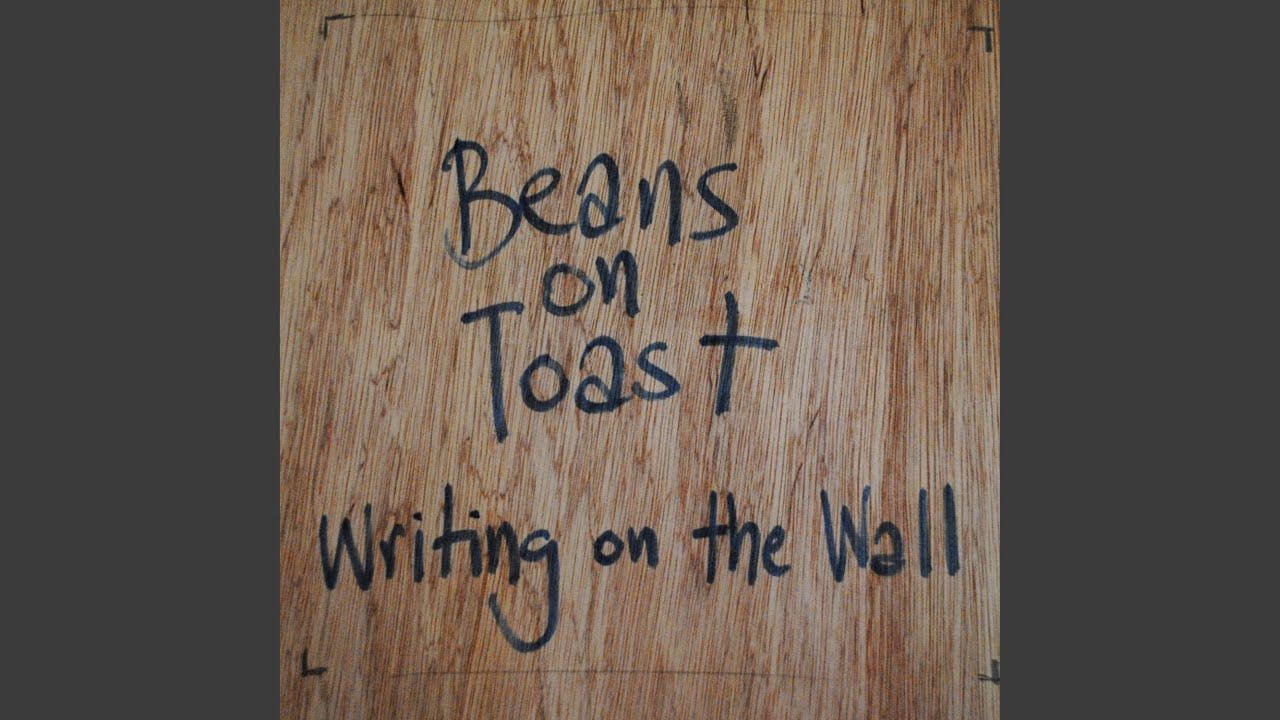 Beans
on
Toast
Writing on the Wall